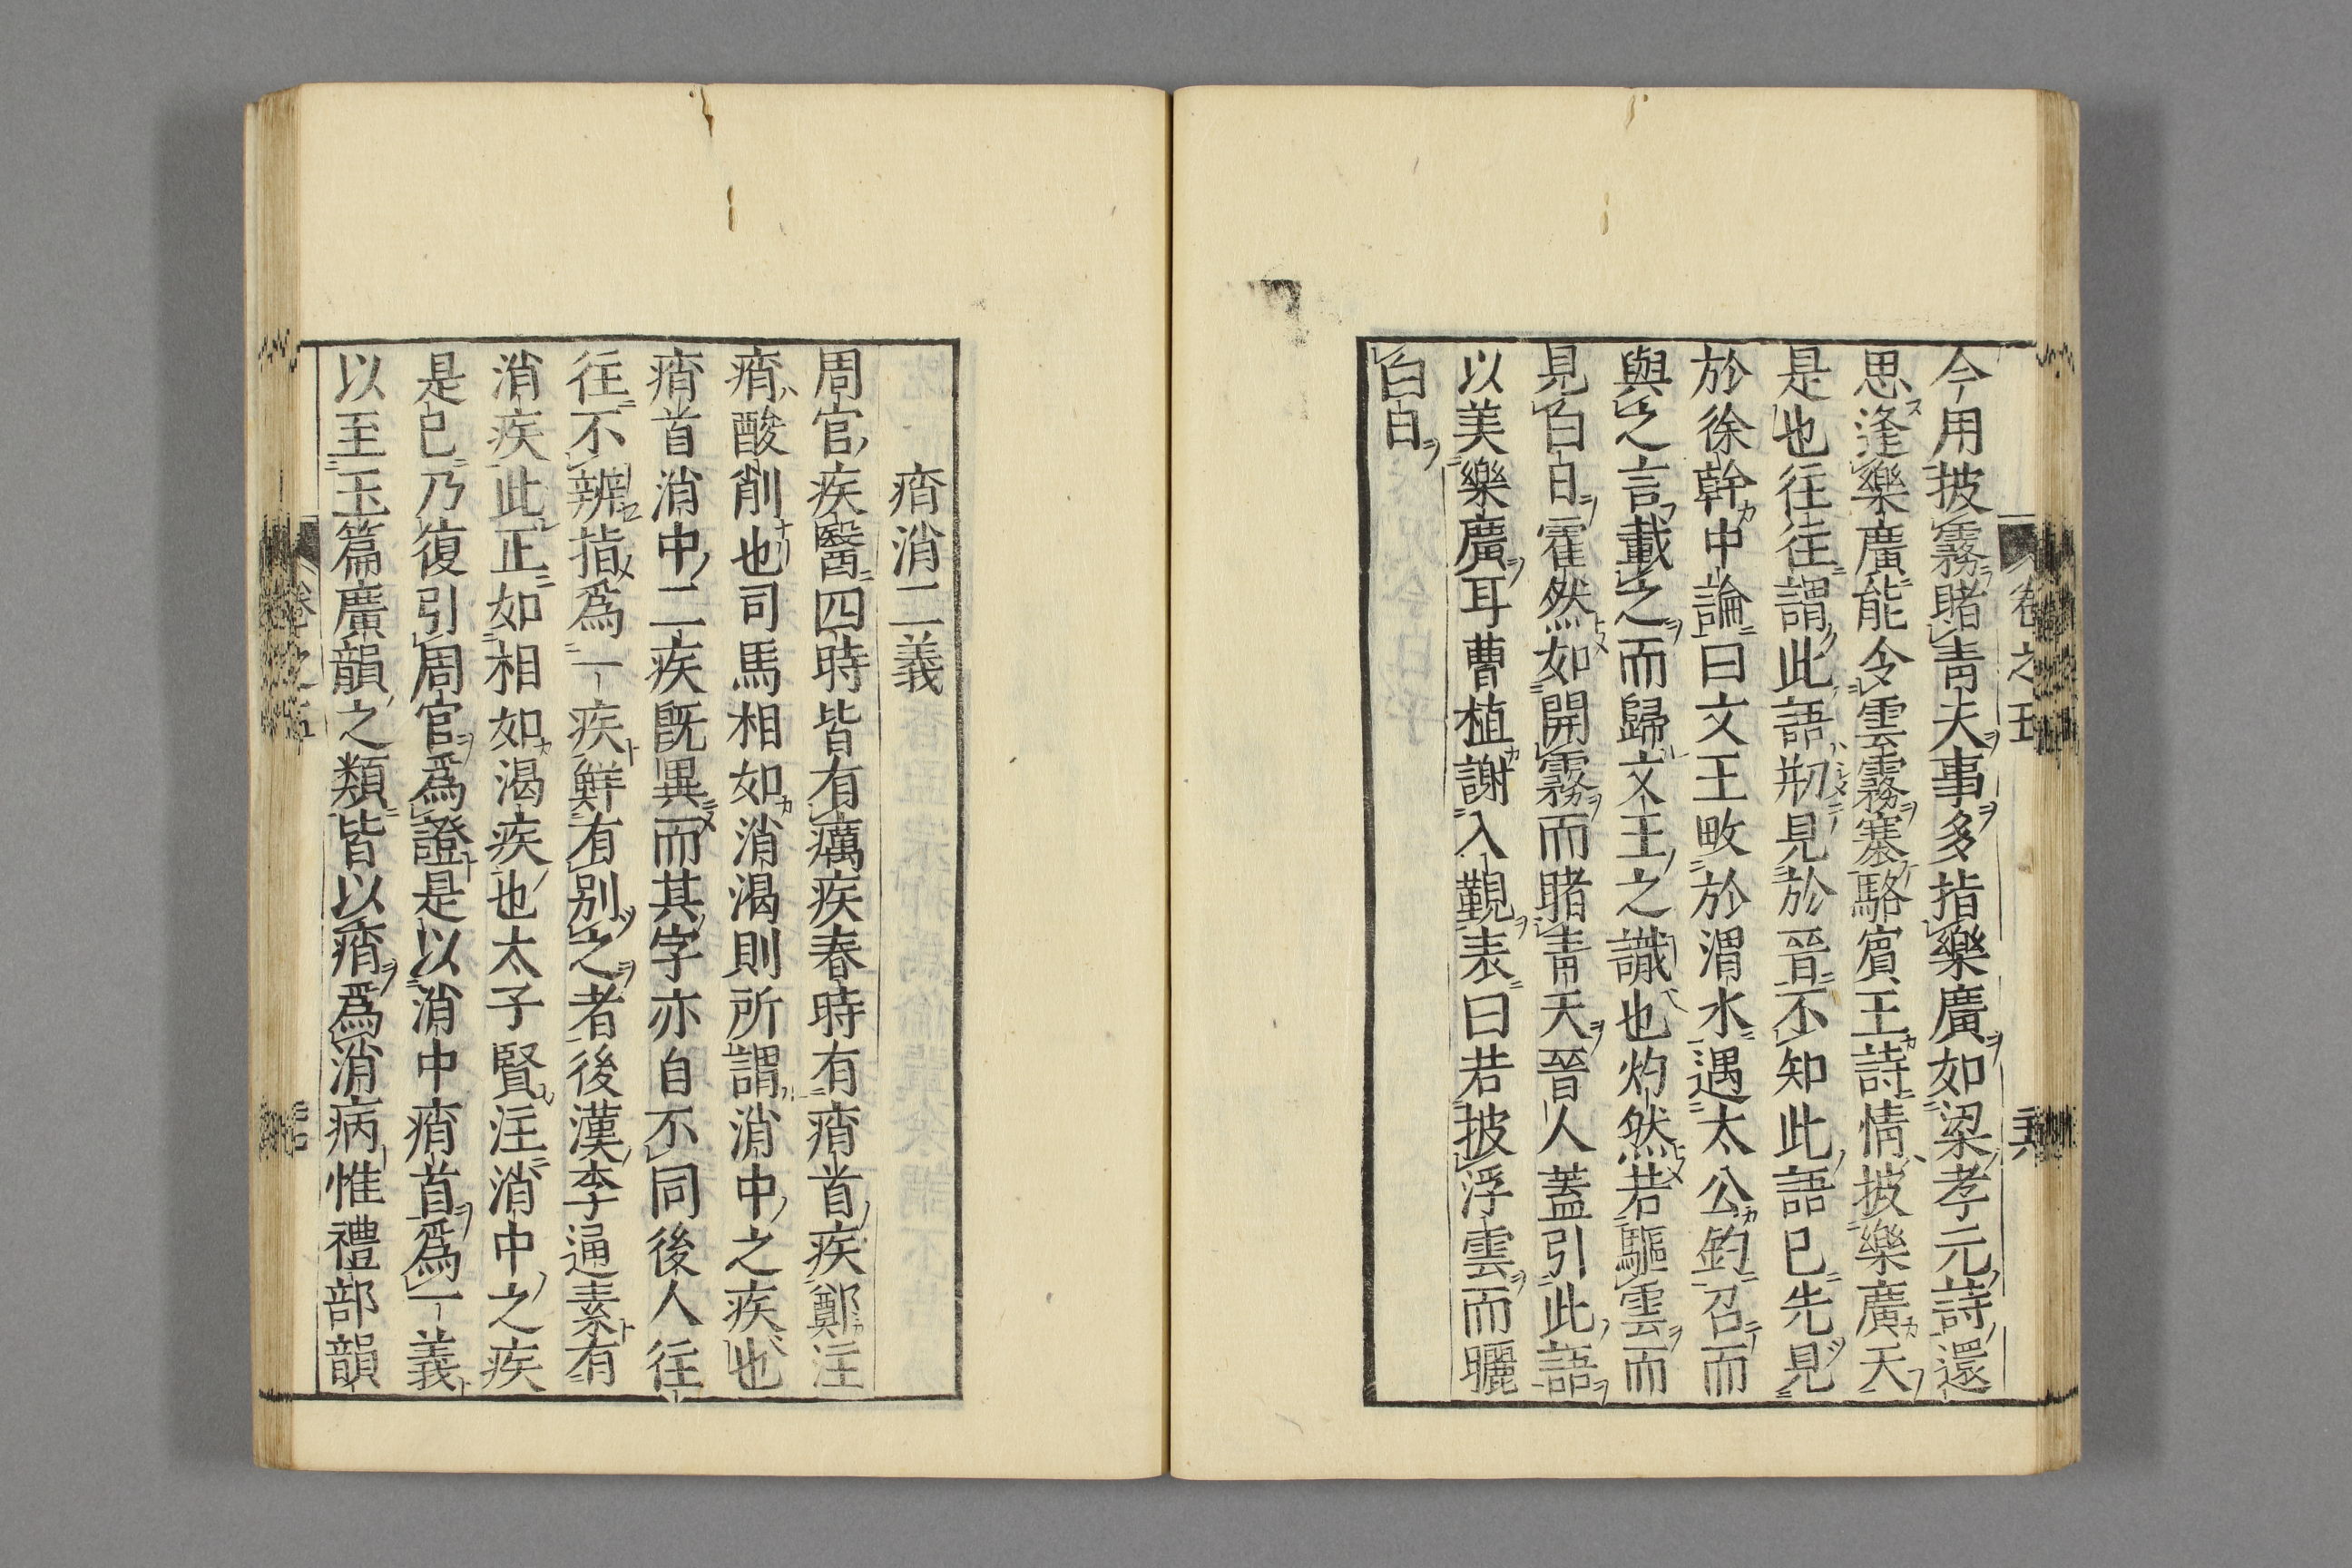 今用披霧睹青天事多指樂廣如梁孝元詩還
思逢樂廣能令雲霧塞駱賓王詩情披樂廣天
是也往往謂此語刱見於晉不知此語已先見
於徐幹中論曰文王畋於渭水遇太公釣召而
與之言載之而歸文王之識也灼然若驅雲而
見白日霍然如開霧而睹靑天晉人蓋引此語
以美樂廣耳曹植謝入覲表曰若披浮雲而曬
白日
痟消二義
周官疾醫四時皆有癘疾春時有痟首疾鄭注
痟酸削也司馬相如消渴則所謂消中之疾也
痟首消中二疾旣異而其字亦自不同後人往
往不辨指爲一疾鮮有别之者後漢李通素有
消疾此正如相如渴疾也太子賢注消中之疾
是已乃復引周官爲證是以消中痟首爲一義
以至玉篇廣韻之類皆以痟爲消病惟禮部韻
卷之五